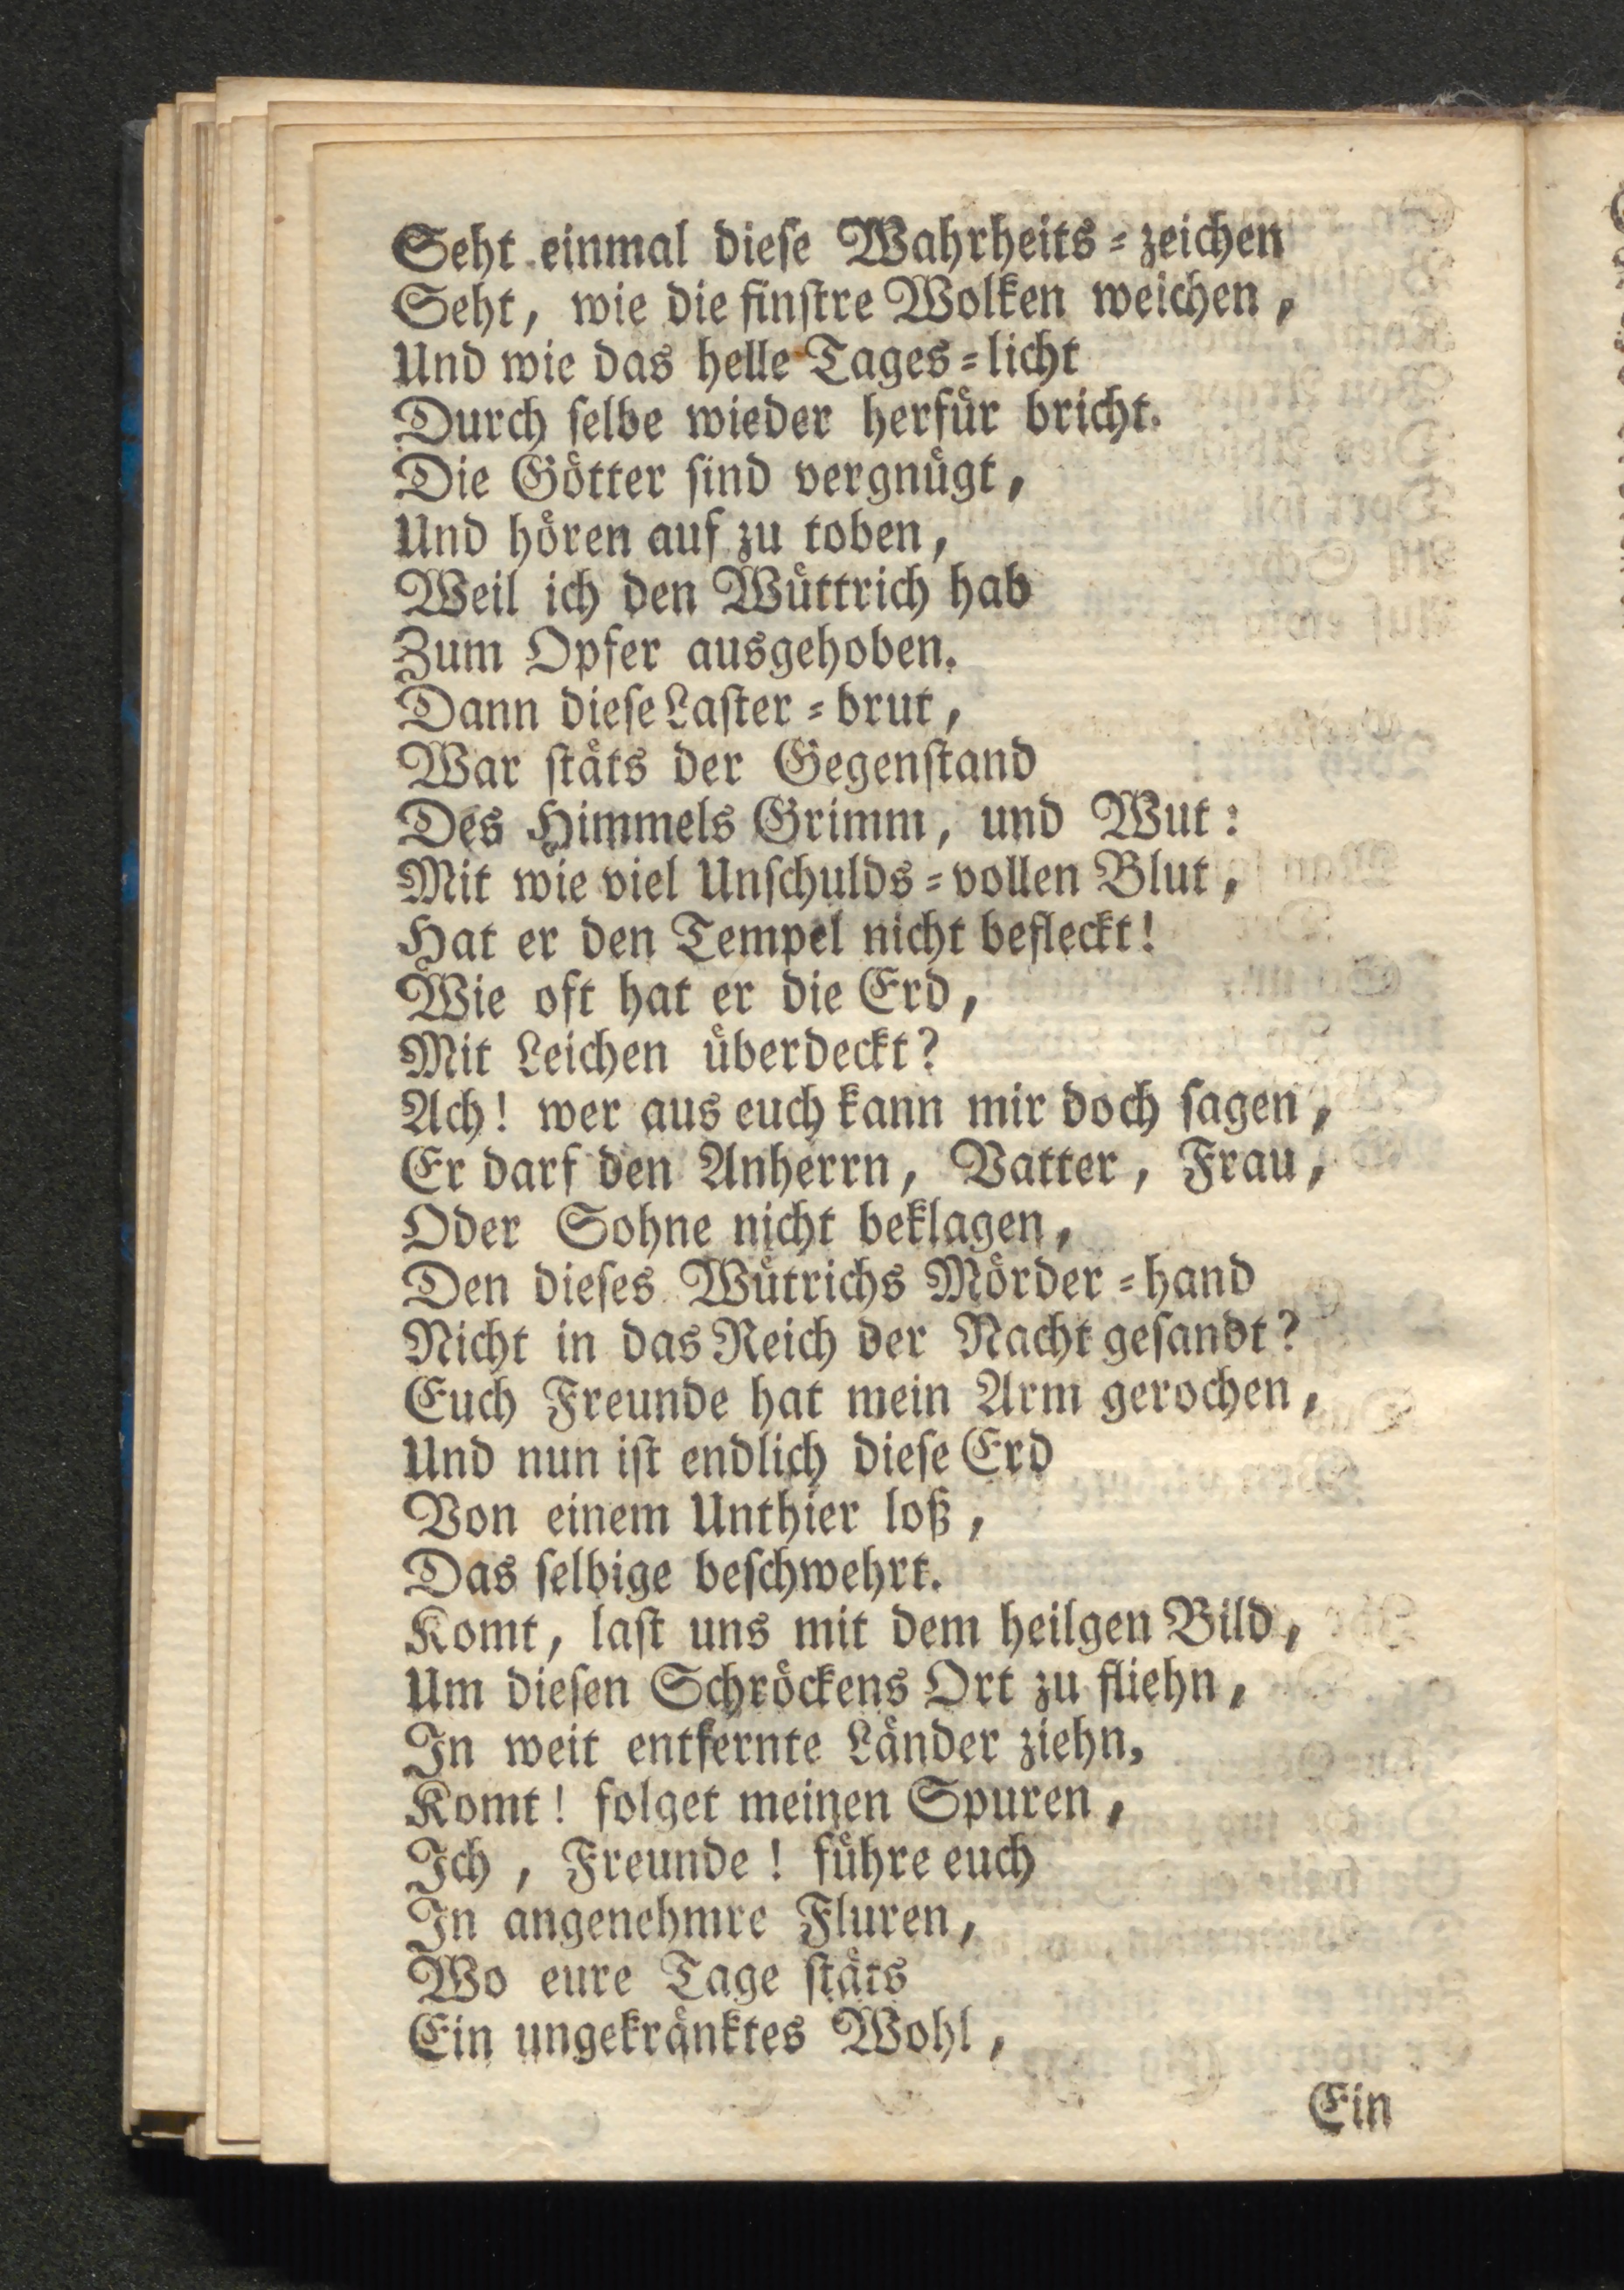 Seht einmal dieſe Wahrheits⸗zeichen
Seht, wie die finſtre Wolken weichen,
Und wie das helle Tages⸗licht
Durch ſelbe wieder herfuͤr bricht.
Die Goͤtter ſind vergnuͤgt,
Und hoͤren auf zu toben,
Weil ich den Wuͤttrich hab
Zum Opfer ausgehoben.
Dann dieſe Laſter⸗brut,
War ſtaͤts der Gegenſtand
Des Himmels Grimm, und Wut:
Mit wie viel Unſchulds⸗vollen Blut,
Hat er den Tempel nicht befleckt!
Wie oft hat er die Erd,
Mit Leichen uͤberdeckt?
Ach! wer aus euch kann mir doch ſagen,
Er darf den Anherrn, Vatter, Frau,
Oder Sohne nicht beklagen,
Den dieſes Wuͤtrichs Moͤrder⸗hand
Nicht in das Reich der Nacht geſandt?
Euch Freunde hat mein Arm gerochen,
Und nun iſt endlich dieſe Erd
Von einem Unthier loß,
Das ſelbige beſchwehrt.
Komt, laſt uns mit dem heilgen Bild,
Um dieſen Schroͤckens Ort zu fliehn,
In weit entfernte Laͤnder ziehn,
Komt! folget meinen Spuren,
Ich, Freunde! fuͤhre euch
In angenehmre Fluren,
Wo eure Tage ſtaͤts
Ein ungekraͤnktes Wohl,
Ein